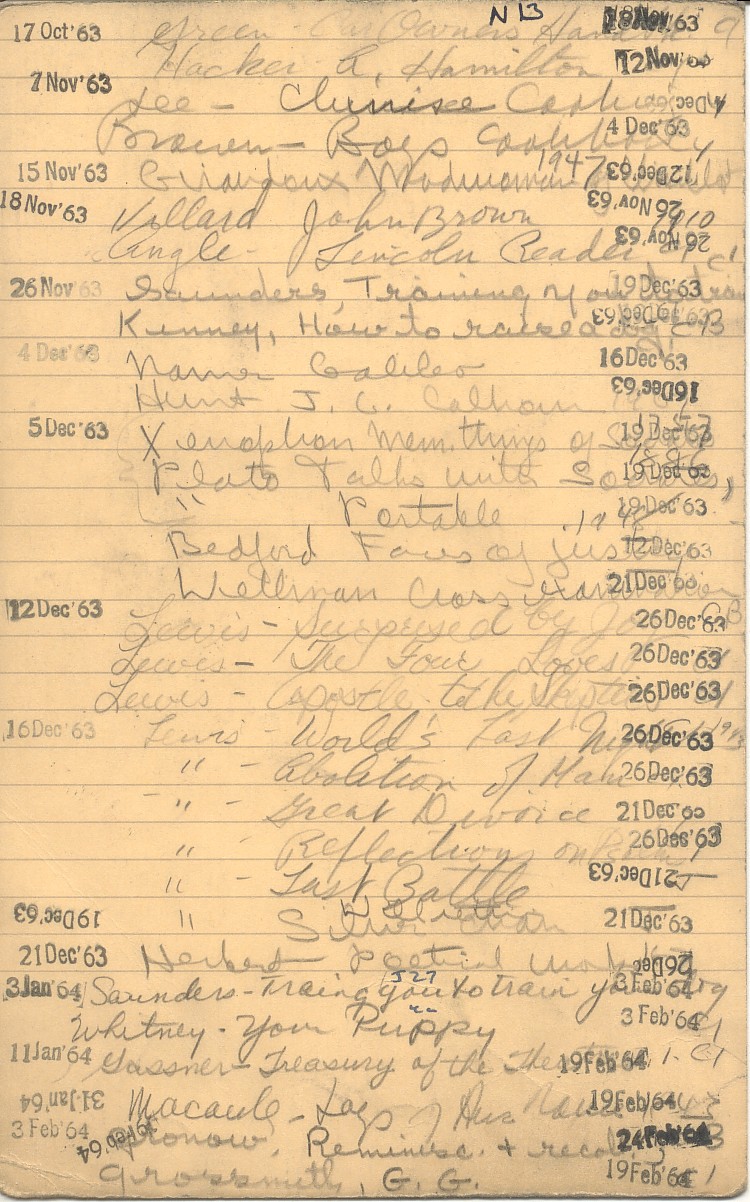 N 13
17 Oct'63 Green - Car Owners Hand 28 Nov.'63
Hacker A. Hamilton 12 Nov'63
7 Nov'63 Lee - Chinise Cook 4 Dec
Brown - Boys Cookbook 4 Dec'63
15 Nov'63 Giraudoux Madwoman 1947 12 Dec'63
18 Nov'63 Villard John Brown 26 Nov'63 1910
Angle - Lincoln Reader 26 Nov'63 C1
26 Nov'63 Saunders, Training you to train 19 Dec'63
Kinney, How to raise a dog 19 Dec'63
4 Dec'63 Galileo 16 Dec'63
Hunt J. C. Calhoun 16 Dec'63
5 Dec'63 Xenophon Mem. things of 19 Dec'63
Plato Talks with Socrates, 19 Dec'63
" Portable 19 Dec'63
Bedford Faces of justice 12 Dec'63
Wellman Cross examination 21 Dec'63
12 Dec'63 Lewis - Surprised by Joy 26 Dec'63
Lewis - The Four Loves 26 Dec'63
Lewis - Apostle to the Skeptics 26 Dec'63
16 Dec'63 Lewis - World's Last Night 26 Dec'63
" - Abolition of Man 26 Dec'63
" - Great Divorce 21 Dec'63
" Reflections on Psalms 26 Dec'63
" Last Battle 21 Dec'63
19 Dec'63 " Silver Chair 21 Dec'63
21 Dec'63 Herbert Poetical works 26 Dec
J27
3 Jan'64 Saunders - Traing you to train your dog 3 Feb'64
Whitney - Your Puppy 3 Feb'64 C1
11 Jan'64 Gassner - Treasury of the Theatre 19 Feb'64 1. C1
31 Jan'64 Macaule - Lays of Anc Rome 19 Feb'64
3 Feb'64 19 Feb'64 Gronow, Reminisc. + recol. 24 Feb'64
Grossmith, G. G. 19 Feb'64